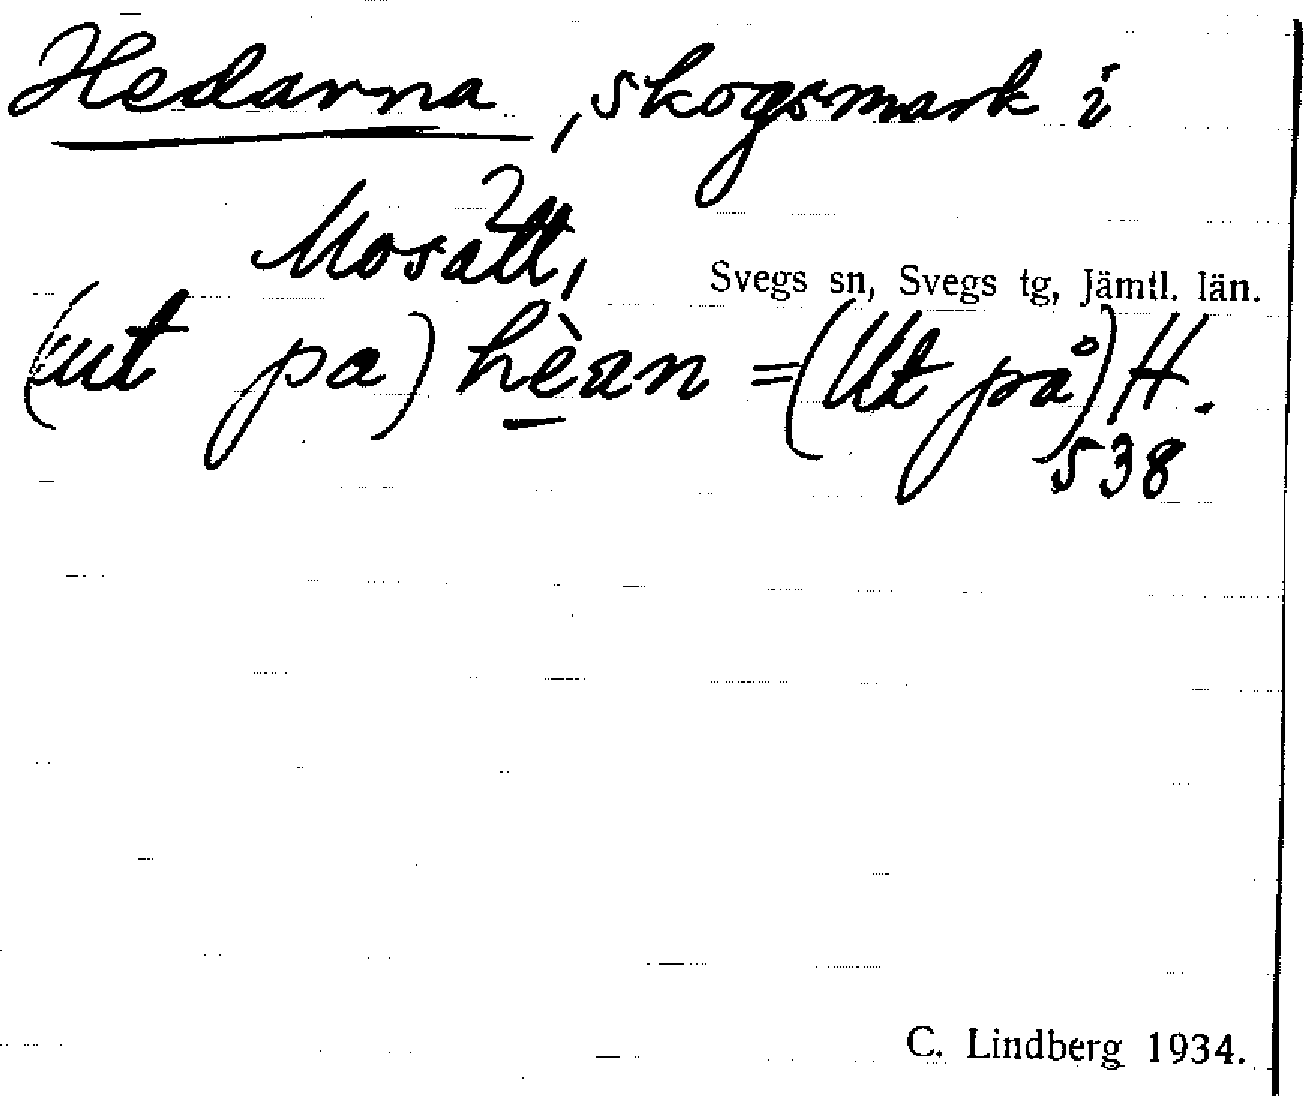 Hedarna, skogsmark i
Mosätt,
Svegs sn, Svegs tg, Jämtl. län.
(ut pa) hèan = (Ut på) H.
538
C. Lindberg 1934.